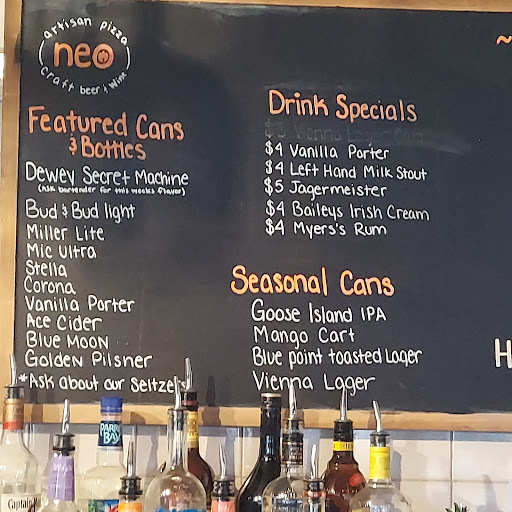 artisan pizza
neo
craft beer & wine
Featured Cans
& Bottles
Dewey Secret Machine
(Ask bartender for this weeks flavor)
Bud & Bud light
Miller Lite
Mic Ultra
Stella
Corona
Vanilla Porter
Ace Cider
Blue Moon
Golden Pilsner
*Ask about our Seltzers
Drink Specials
$3 Vienna Lager Can
$4 Vanilla Porter
$4 Left Hand Milk Stout
$5 Jagermeister
$4 Baileys Irish Cream
$4 Myers's Rum
Seasonal Cans
Goose Island IPA
Mango Cart
Blue point toasted Lager
Vienna Lager
~
H
PARROT
BAY
Captain